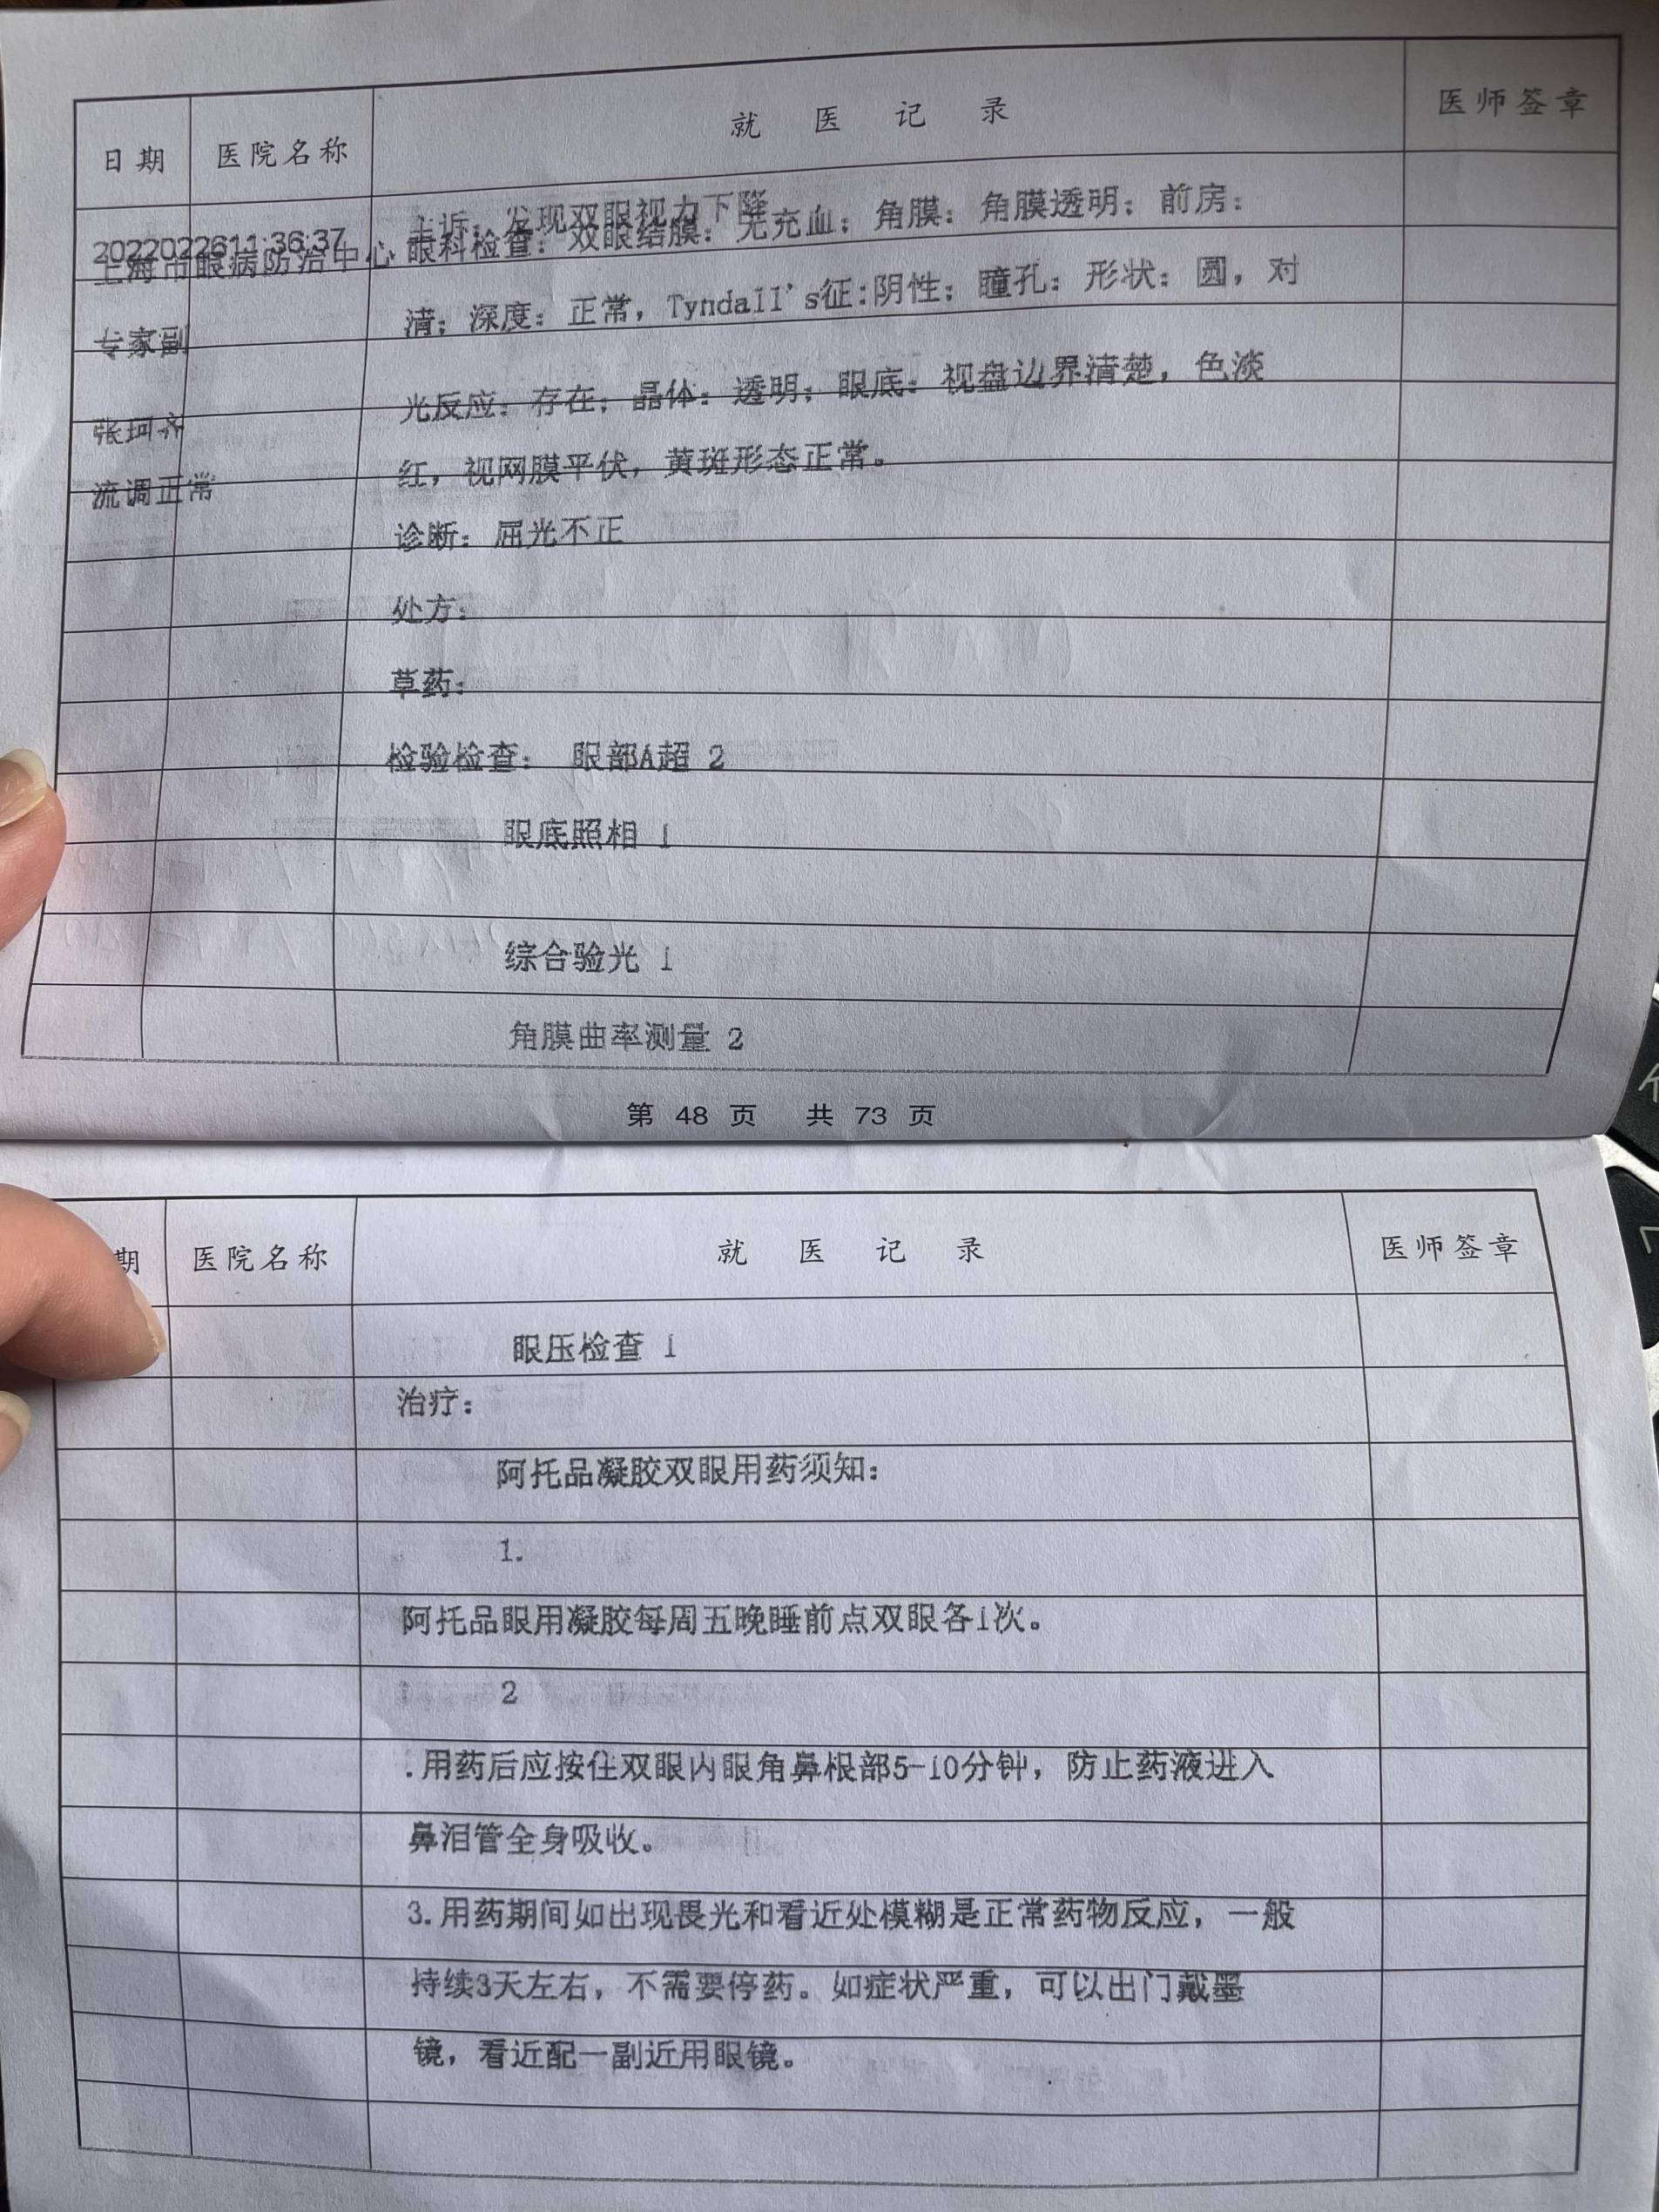 日期 医院名称 就医记录 医师签章
2022022611:36:37 主诉：发现双眼视力下降
上海市眼病防治中心 眼科检查：双眼结膜：无充血；角膜：角膜透明；前房：
清；深度：正常，Tyndall's征:阴性；瞳孔：形状：圆，对
专家副
光反应：存在；晶体：透明；眼底：视盘边界清楚，色淡
张珂齐
红，视网膜平伏，黄斑形态正常。
流调正常
诊断：屈光不正
处方：
草药：
检验检查： 眼部A超 2
眼底照相 1
综合验光 1
角膜曲率测量 2
第 48 页 共 73 页
期 医院名称 就医记录 医师签章
眼压检查 1
治疗：
阿托品凝胶双眼用药须知：
1.
阿托品眼用凝胶每周五晚睡前点双眼各1次。
2
.用药后应按住双眼内眼角鼻根部5-10分钟，防止药液进入
鼻泪管全身吸收。
3.用药期间如出现畏光和看近处模糊是正常药物反应，一般
持续3天左右，不需要停药。如症状严重，可以出门戴墨
镜，看近配一副近用眼镜。